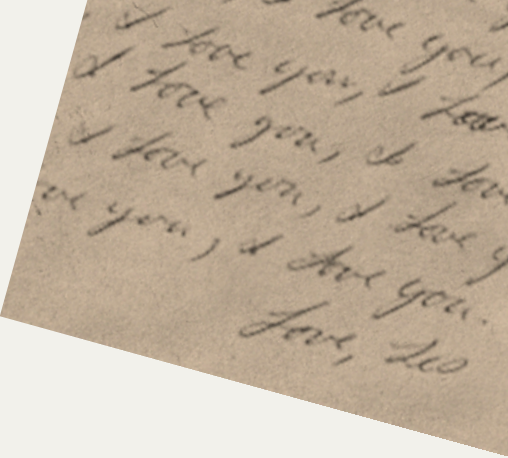 I love you,
I love you, I love
I love you, I love
I love you, I love y
ve you, I love you.
Love, Leo